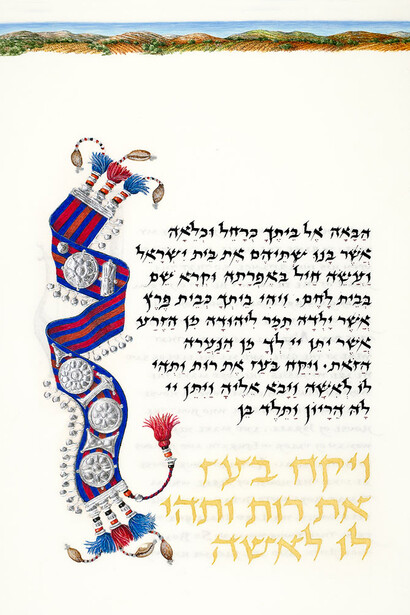 הַבָּאָה אֶל בֵּיתֶךָ כְּרָחֵל וּכְלֵאָה
אֲשֶׁר בָּנוּ שְׁתֵּיהֶם אֶת בֵּית יִשְׂרָאֵל
וַעֲשֵׂה חַיִל בְּאֶפְרָתָה וּקְרָא שֵׁם
בְּבֵית לָחֶם. וִיהִי בֵיתְךָ כְּבֵית פֶּרֶץ
אֲשֶׁר יָלְדָה תָמָר לִיהוּדָה מִן הַזֶּרַע
אֲשֶׁר יִתֵּן יי לְךָ מִן הַנַּעֲרָה
הַזֹּאת. וַיִּקַּח בֹּעַז אֶת רוּת וַתְּהִי
לוֹ לְאִשָּׁה וַיָּבֹא אֵלֶיהָ וַיִּתֵּן יי
לָהּ הֵרָיוֹן וַתֵּלֶד בֵּן
ויקח בעז
את רות ותהי
לו לאשה